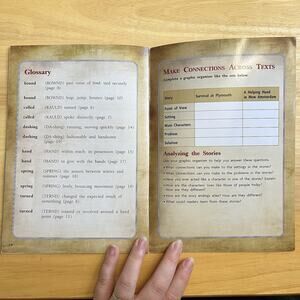 Glossary
bound (BOWND) past tense of bind: tied securely
(page 8)
bound (BOWND) leap; jump; bounce (page 10)
called (KAULD) named (page 6)
called (KAULD) spoke distinctly (page 7)
dashing (DA-shing) running, moving quickly (page 14)
dashing (DA-shing) fashionable and handsome
(page 19)
hand (HAND) within reach; in possession (page 15)
hand (HAND) to give with the hands (page 17)
spring (SPRING) the season between winter and
summer (page 18)
spring (SPRING) lively, bouncing movement (page 19)
turned (TERND) changed the expected result of
something (page 8)
turned (TERND) rotated or revolved around a fixed
point (page 11)
MAKE CONNECTIONS ACROSS TEXTS
Complete a graphic organizer like the one below.
Story Survival at Plymouth A Helping Hand
in New Amsterdam
Point of View
Setting
Main Characters
Problem
Solution
Analyzing the Stories
Use your graphic organizer to help you answer these questions.
• What connections can you make to the settings in the stories?
• What connections can you make to the problems in the stories?
you ever acted like a character in one of the stories? Explain.
are the characters lives like those of people today?
How are they different?
are the story endings alike? How are they different?
• What could readers learn from these stories?